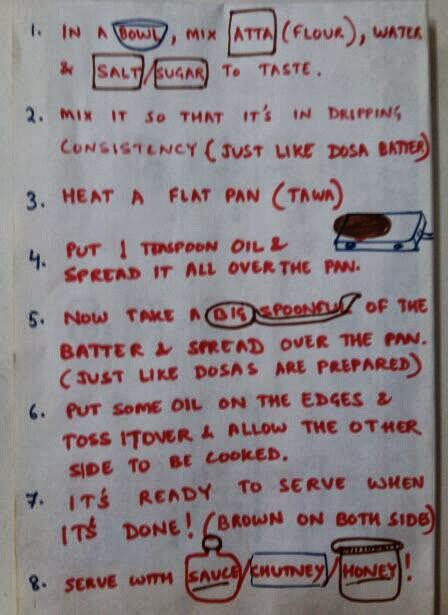 1. IN A BOWL, MIX ATTA (FLOUR), WATER
& SALT/SUGAR TO TASTE.
2. MIX IT SO THAT IT'S IN DRIPPING
CONSISTENCY (JUST LIKE DOSA BATTER)
3. HEAT A FLAT PAN (TAWA)
4. PUT 1 TEASPOON OIL &
SPREAD IT ALL OVER THE PAN.
5. NOW TAKE A BIG SPOONFUL OF THE
BATTER & SPREAD OVER THE PAN.
(JUST LIKE DOSAS ARE PREPARED)
6. PUT SOME OIL ON THE EDGES &
TOSS IT OVER & ALLOW THE OTHER
SIDE TO BE COOKED.
7. IT'S READY TO SERVE WHEN
IT'S DONE! (BROWN ON BOTH SIDE)
8. SERVE WITH SAUCE/CHUTNEY/HONEY!